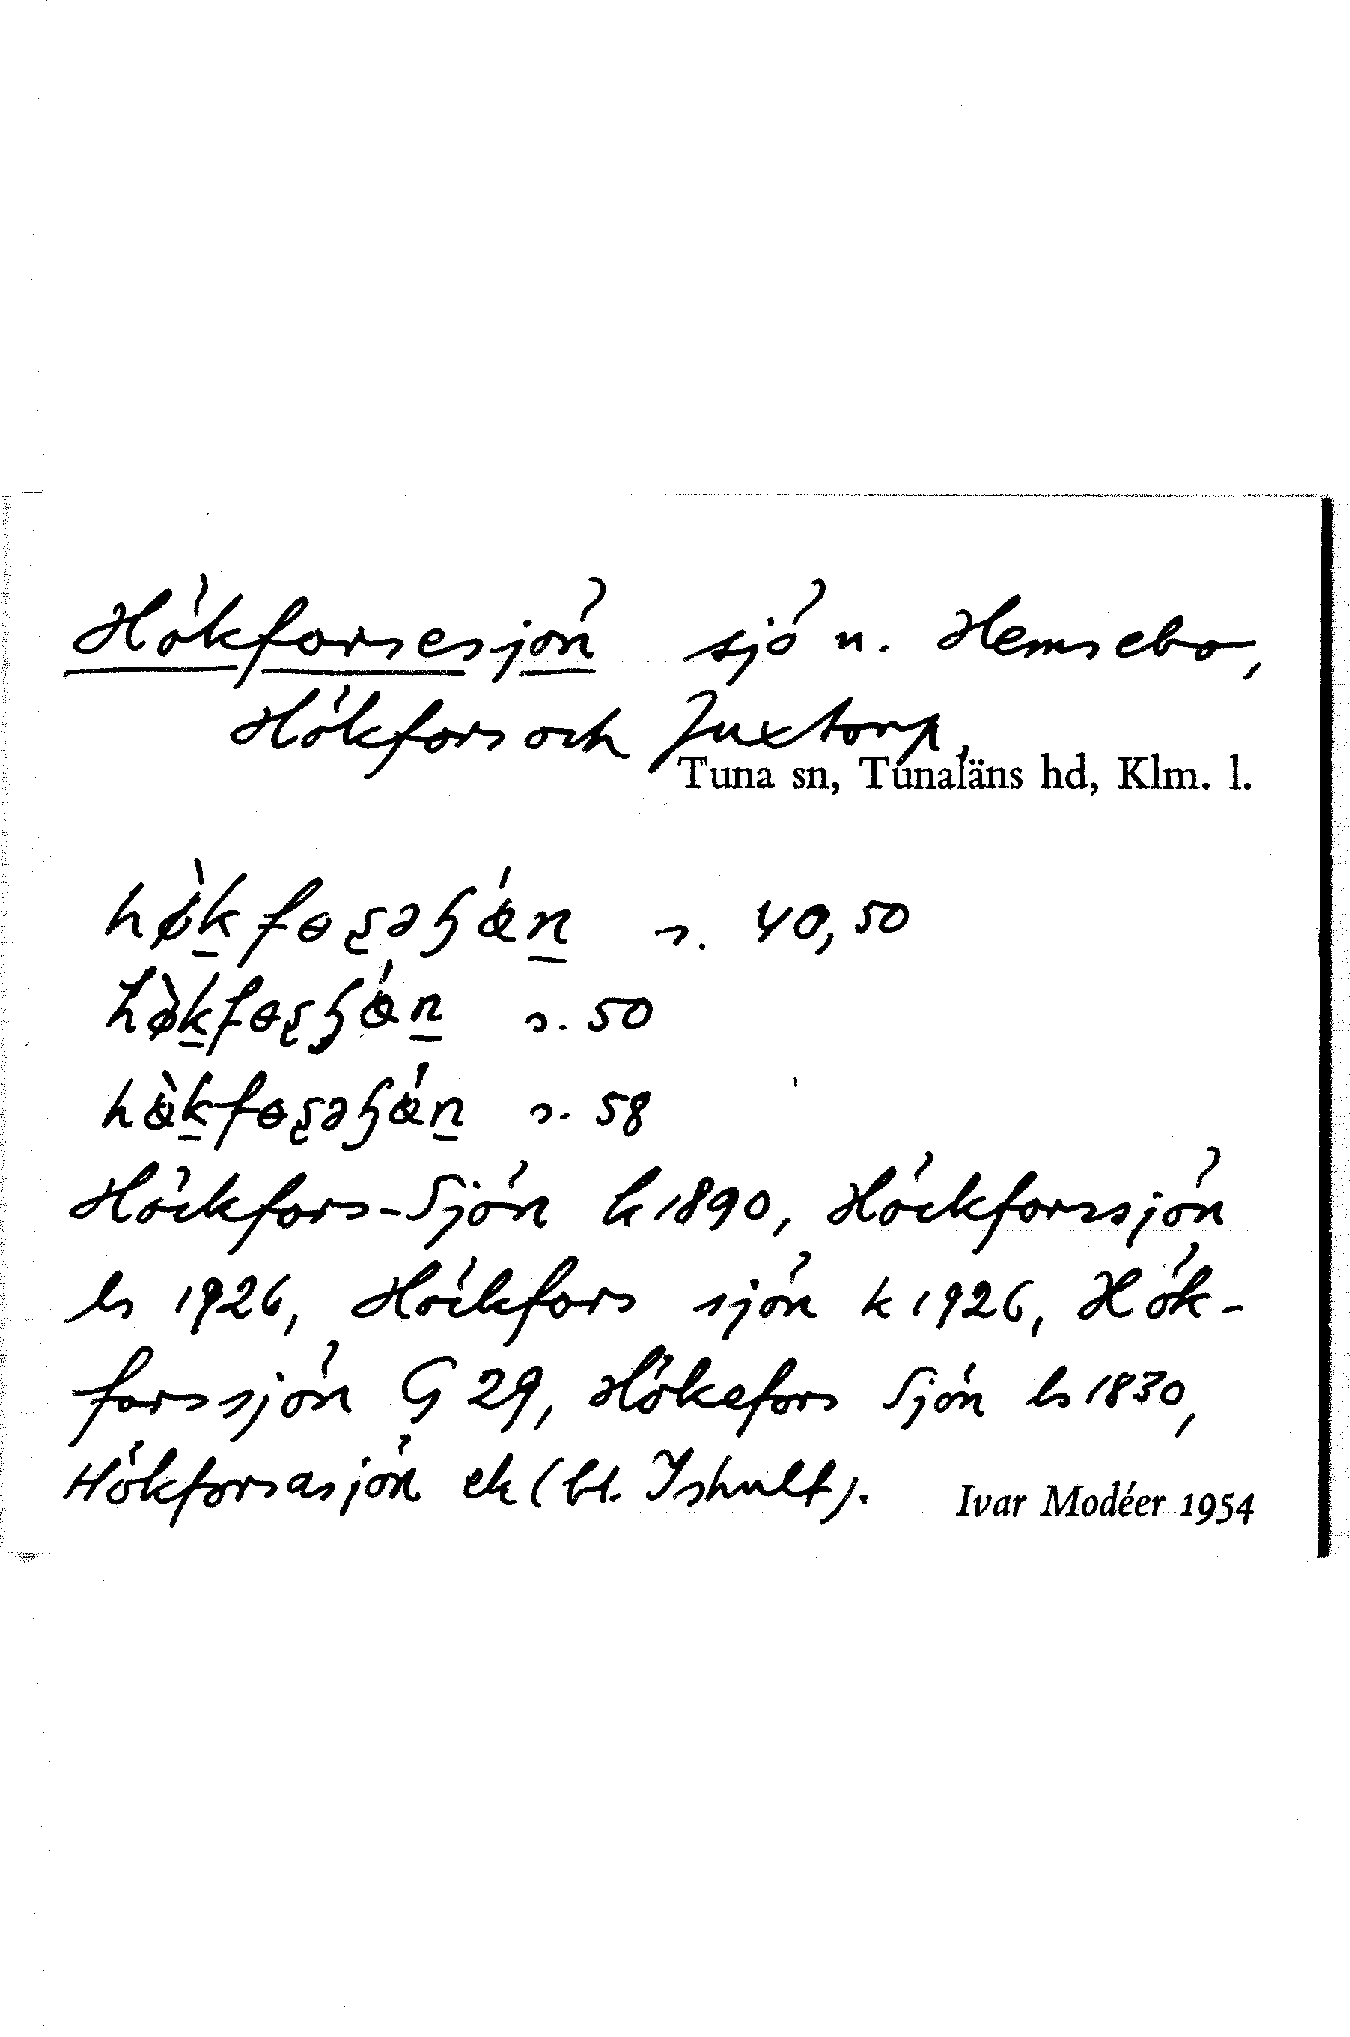 Hökforsesjön sjö n. Hemsebo,
Hökfors och Juxtorp,
Tuna sn, Tunaläns hd, Klm. l.
s. 40, 50
s. 50
s. 58
Höckfors-Sjön k 1890, Höckforssjön
ls 1926, Höckfors sjön k 1926, Hök-
forssjön G 29, Hökefors Sjön ls 1830,
Hökforsasjön ek (bl. Ishult).
Ivar Modéer 1954